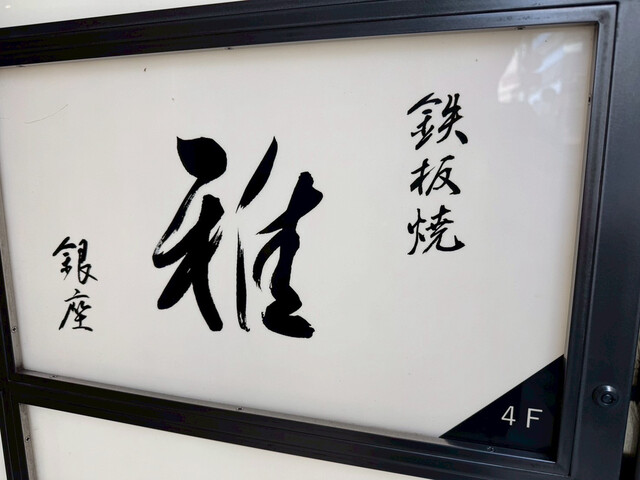 鉄板焼
雅
銀座
4F